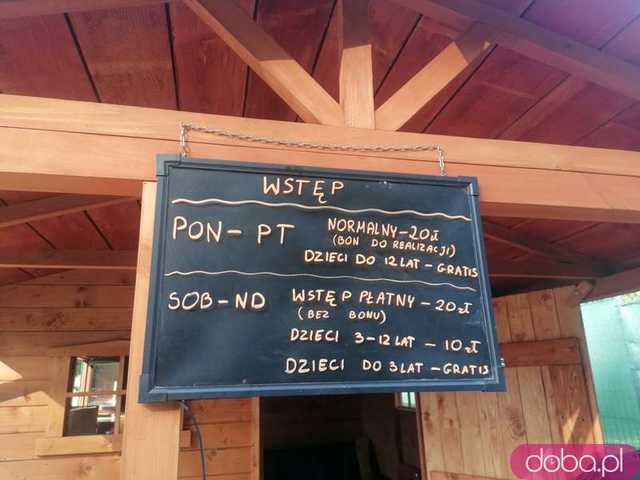 WSTĘP
PON - PT NORMALNY - 20 zł
(BON DO REALIZACJI)
DZIECI DO 12 LAT - GRATIS
SOB - ND WSTĘP PŁATNY - 20 zł
(BEZ BONU)
DZIECI 3 - 12 LAT - 10 zł
DZIECI DO 3 LAT - GRATIS
doba.pl